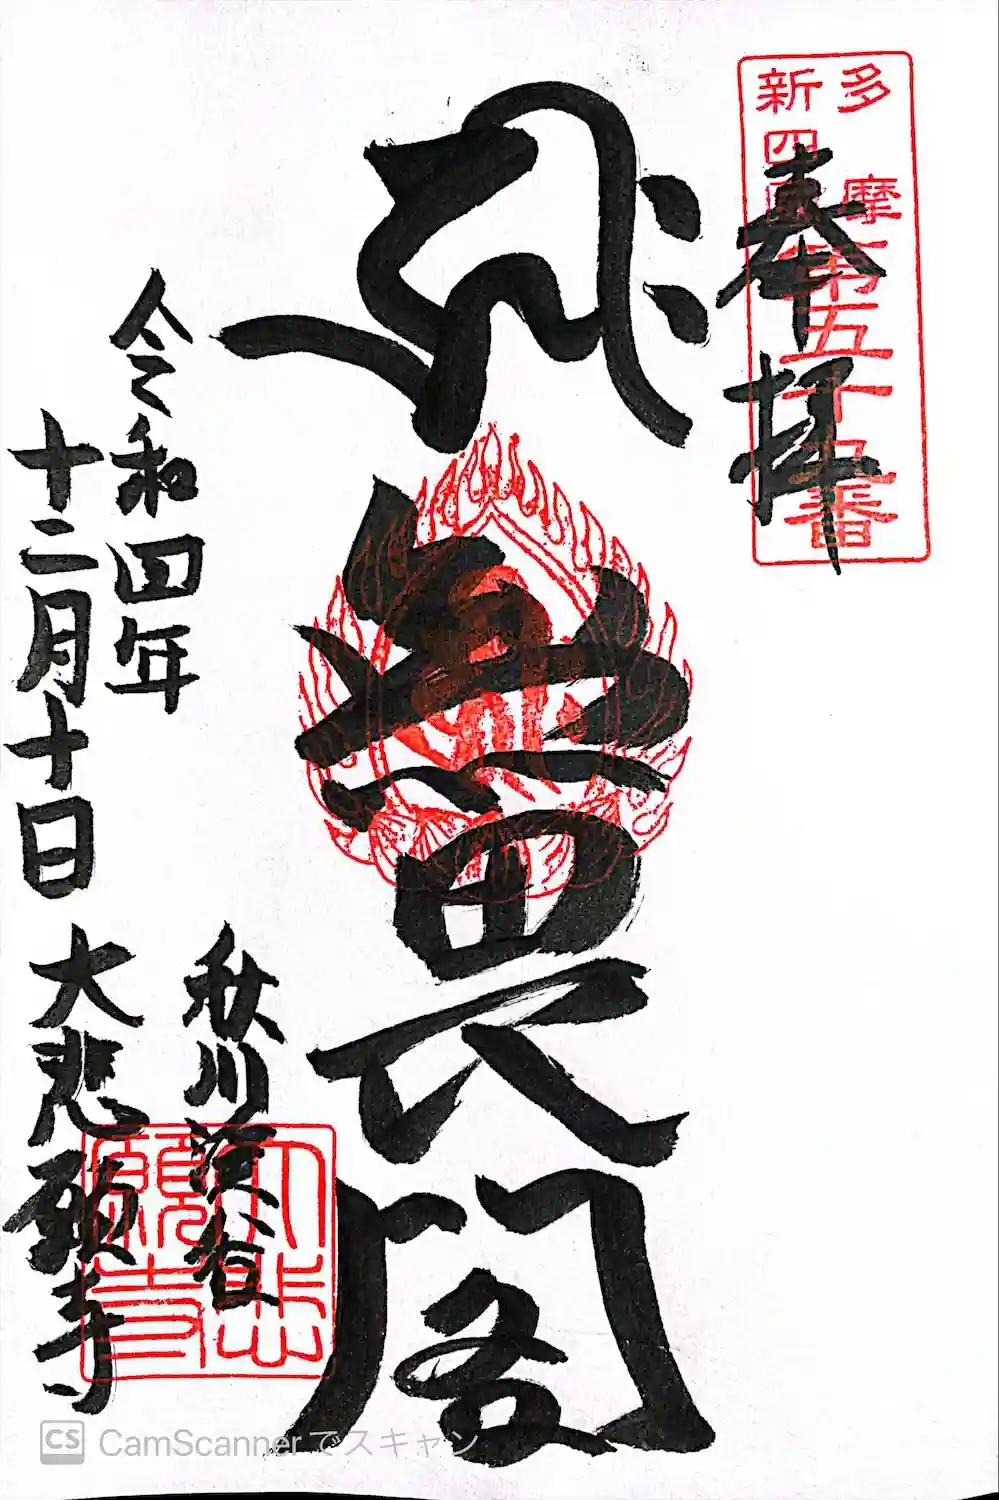 多摩
新四国
第五十九番
奉拝
無畏閣
令和四年
十二月十日
秋川渓谷
大悲願寺
大悲願寺
CS CamScannerでスキャン